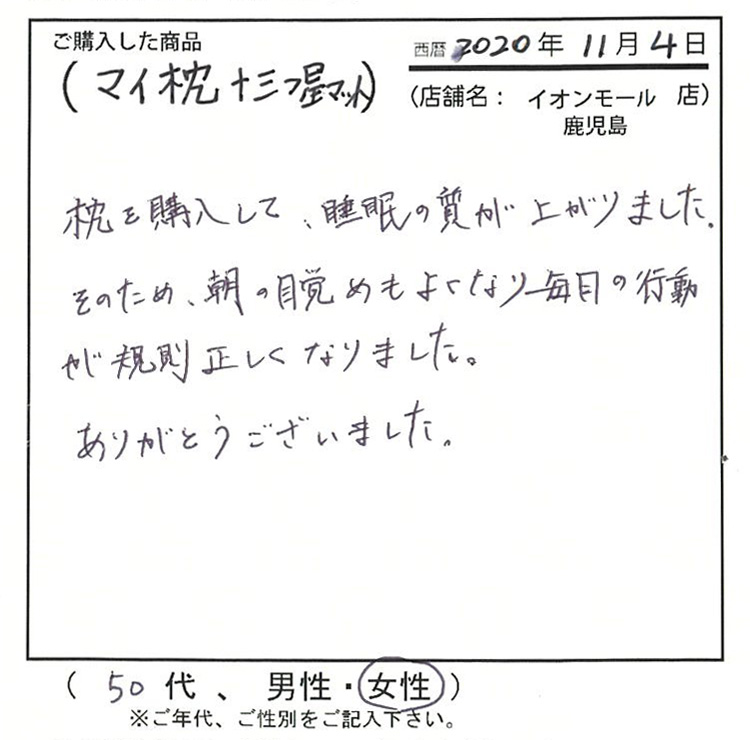 ご購入した商品
西暦 2020年 11月 4日
(マイ枕+三つ星マット)
(店舗名： イオンモール鹿児島 店)
枕を購入して、睡眠の質が上がりました。
そのため、朝の目覚めもよくなり毎日の行動
が規則正しくなりました。
ありがとうございました。
( 50代 、 男性・女性 )
※ご年代、ご性別をご記入下さい。